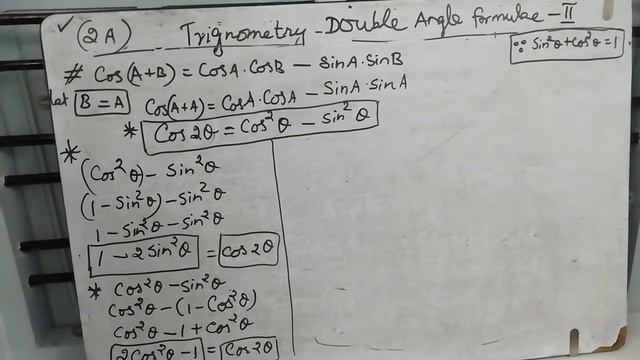 ✓ (2A) Trignometry - Double Angle formulae - II
∵ Sin²θ + Cos²θ = 1
# Cos(A+B) = CosA.CosB - SinA.SinB
let B = A Cos(A+A) = CosA.CosA - SinA.SinA
* Cos2θ = Cos²θ - Sin²θ
*
(Cos²θ) - Sin²θ
(1 - Sin²θ) - Sin²θ
1 - Sin²θ - Sin²θ
1 - 2Sin²θ = Cos2θ
* Cos²θ - Sin²θ
Cos²θ - (1 - Cos²θ)
Cos²θ - 1 + Cos²θ
2Cos²θ - 1 = Cos2θ